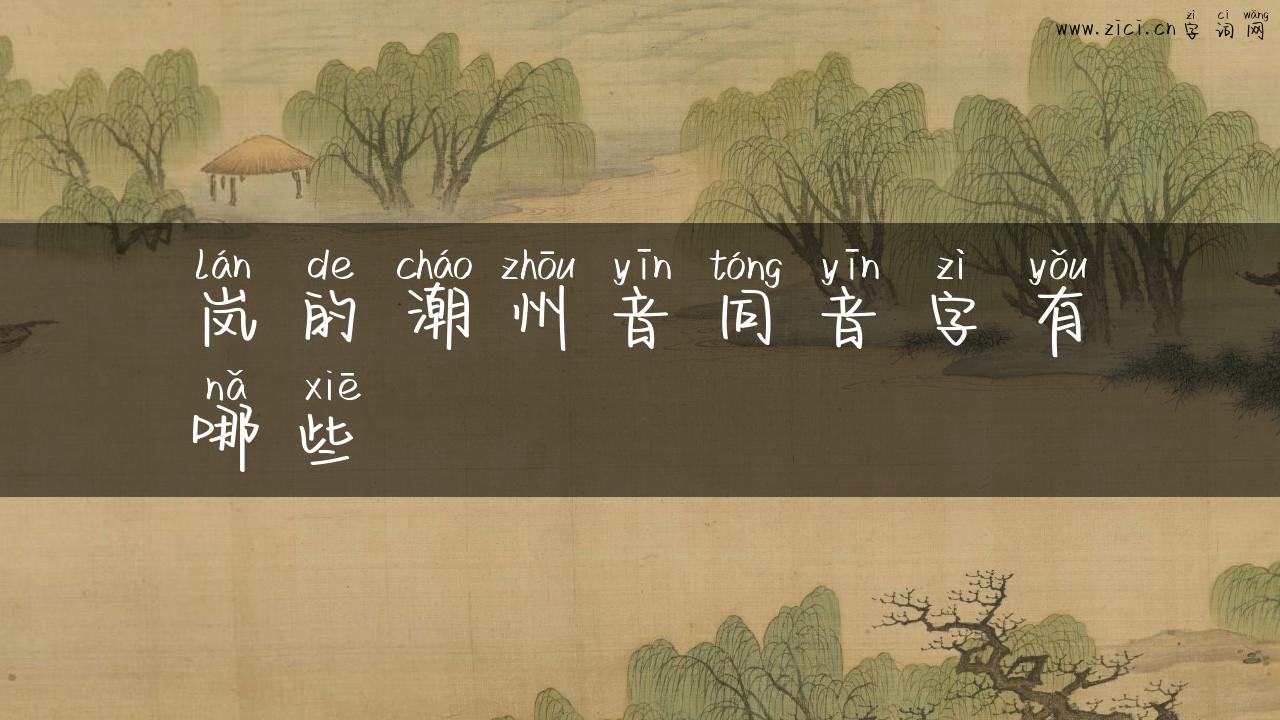 zì cí wǎng
www.zici.cn 字词网
lán de cháo zhōu yīn tóng yīn zì yǒu
岚的潮州音同音字有
nǎ xiē
哪些